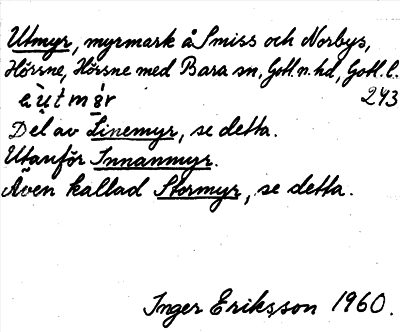 Utmyr, myrmark å Smiss och Norbys,
Hörsne, Hörsne med Bara sn, Gotl. n. hd, Gotl. l.
243
Del av Linemyr, se detta.
Utanför Innanmyr.
Även kallad Stormyr, se detta.
Inger Eriksson 1960.